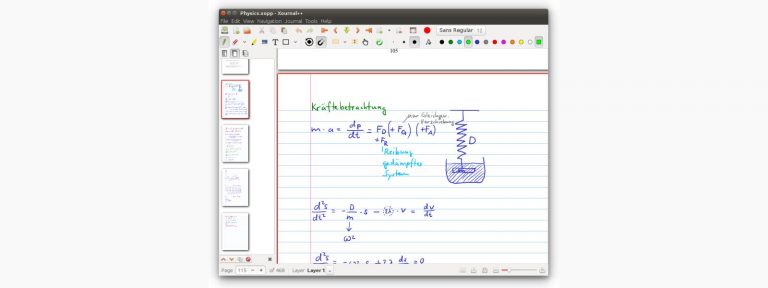 Physics.xopp - Xournal++
File Edit View Navigation Journal Tools Help
Sans Regular 12
105
Kräftebetrachtung
m · a = dp/dt = F_D (+ F_G) (+F_A)
+F_R
Reibung
gedämpftes
System
D
d²s/dt² = -D/m · s - 2λ · v = dv/dt
ω²
Page 115 of 468 Layer Layer 1